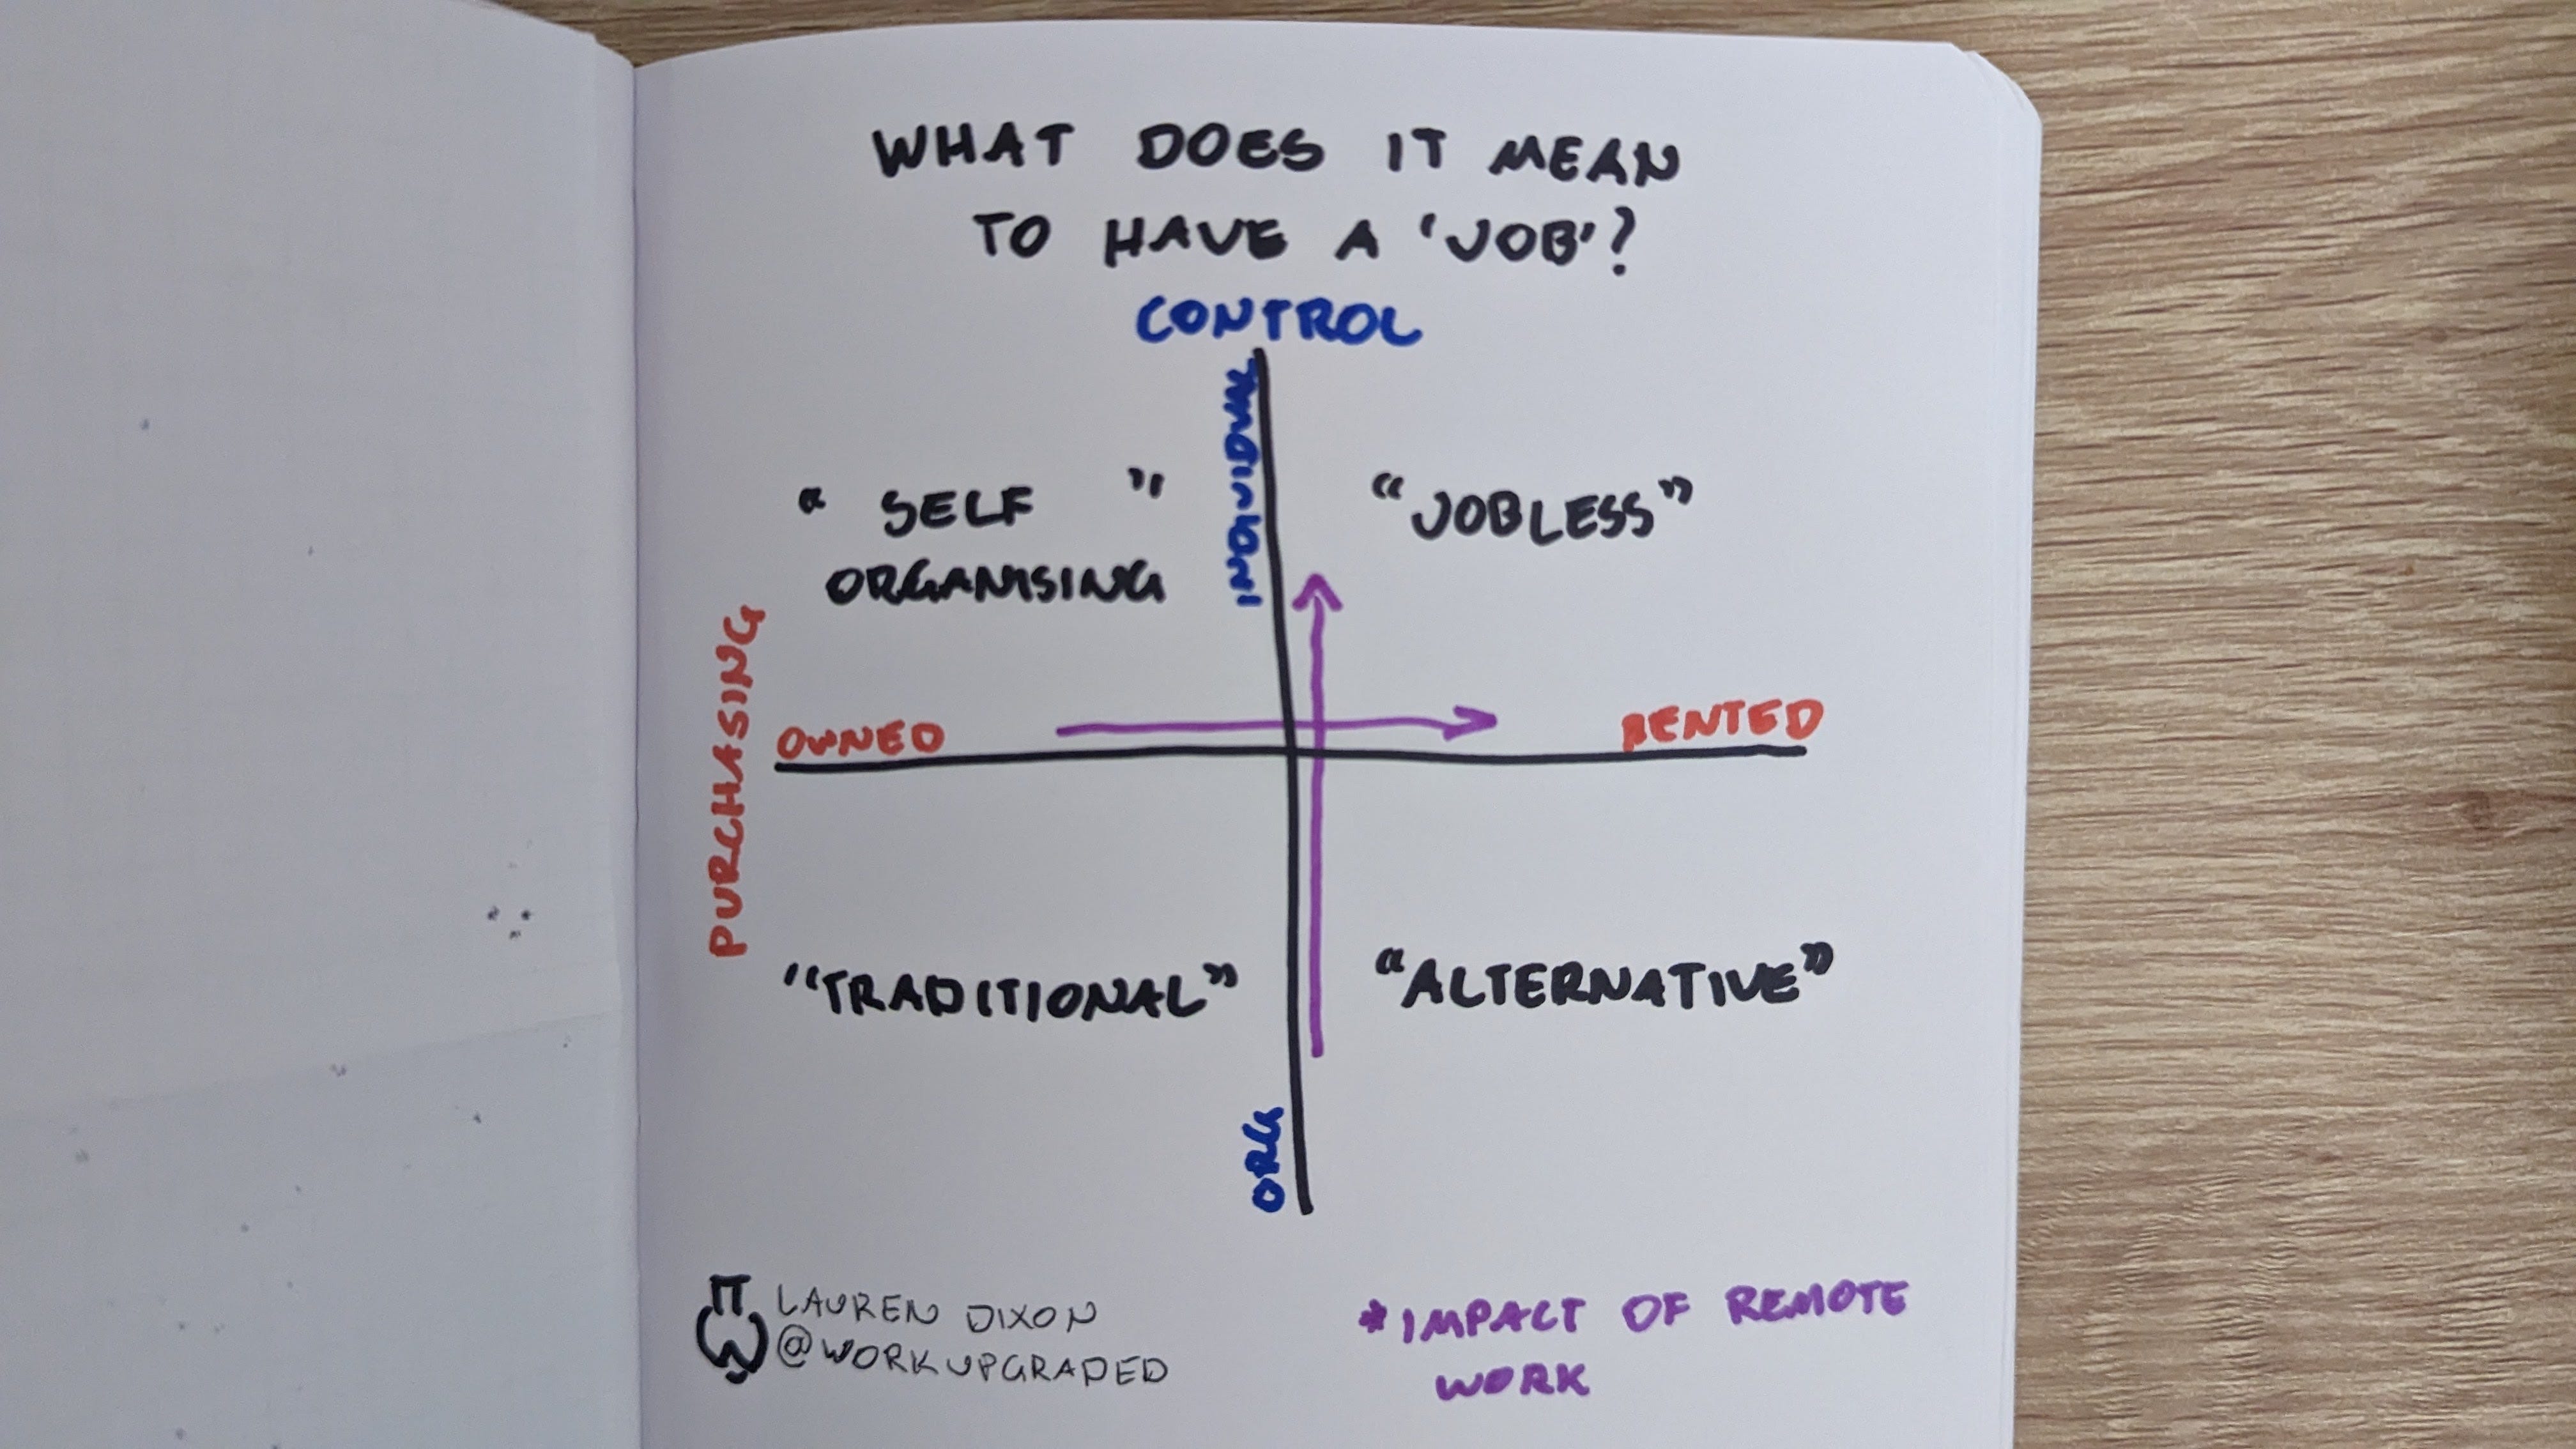 WHAT DOES IT MEAN
TO HAVE A 'JOB'?
CONTROL
INDIVIDUAL
" SELF "
ORGANISING
"JOBLESS"
PURCHASING
OWNED
RENTED
"TRADITIONAL"
"ALTERNATIVE"
ORG
LAUREN DIXON
@WORKUPGRADED
*IMPACT OF REMOTE
WORK